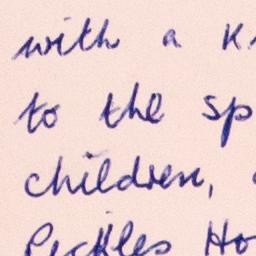 with a K
to the sp
children,
Peckles Ho